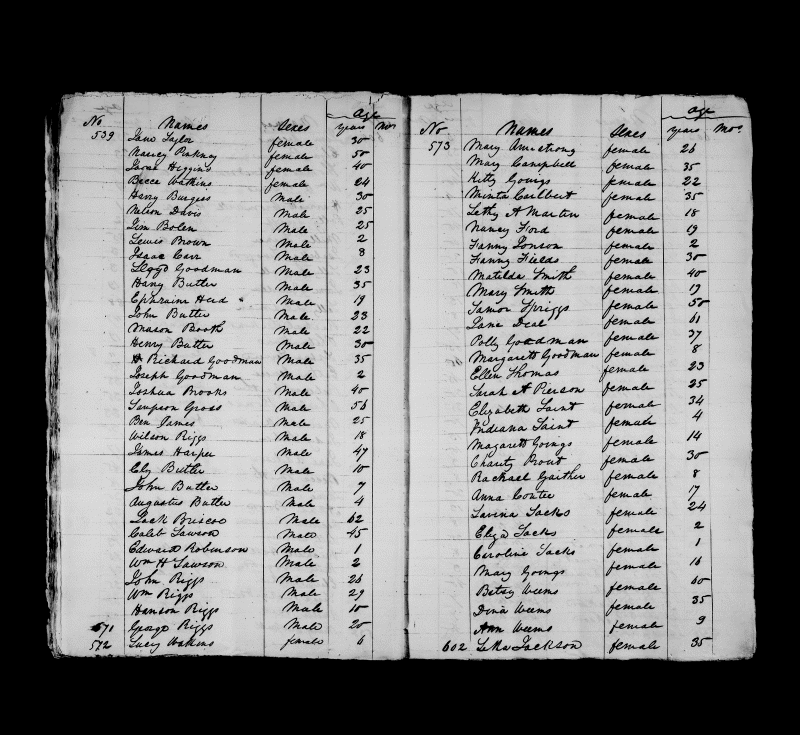 Age
No Names Sexes years Mos
539 Jane Taylor female 30
Nancy Pinkney female 50
Jane Higgins female 40
Becca Watkins female 24
Harry Burgess Male 30
Nelson Davis Male 25
Jim Bolen Male 25
Lewis Brown Male 2
Isaac Carr Male 8
Lloyd Goodman Male 23
Harry Butler Male 35
Ephraim Hud Male 19
John Butler Male 23
Mason Booth Male 22
Henry Butler Male 30
H Richard Goodman Male 35
Joseph Goodman Male 2
Joshua Brooks Male 40
Sampson Gross Male 56
Ben James Male 25
Wilson Riggs Male 18
James Harper Male 47
Ely Butler Male 10
John Butler Male 7
Augustus Butler Male 4
Jack Briscoe Male 62
Caleb Lawson Male 45
Edward Robinson Male 1
Wm H Lawson Male 2
John Riggs Male 26
Wm Riggs Male 29
Hanson Riggs Male 10
571 George Riggs Male 20
572 Lucy Watkins female 6
Age
No Names Sexes years Mos.
573 Mary Armstrong female 26
Mary Campbell female 35
Kitty Goings female 22
Minta female 35
Letty A Martin female 18
Nancy Ford female 19
Fanny Jonson female 2
Fanny Fields female 30
Matilda Smith female 40
Mary Smith female 19
Tamor Spriggs female 50
Jane Deal female 61
Polly Goodman female 37
Margarett Goodman female 8
Ellen Thomas female 23
Sarah A Pierson female 25
Elizabeth Saint female 34
Indiana Saint female 4
Magarett Goings female 14
Charity Prout female 30
Rachael Gaither female 8
Anna Coutee female 17
Lavina Jacks female 24
Eliza Jacks female 2
Caroline Jacks female 1
Mary Goings female 16
Betsy Weems female 60
Dina Weems female 35
Ann Weems female 9
602 Jackson female 35